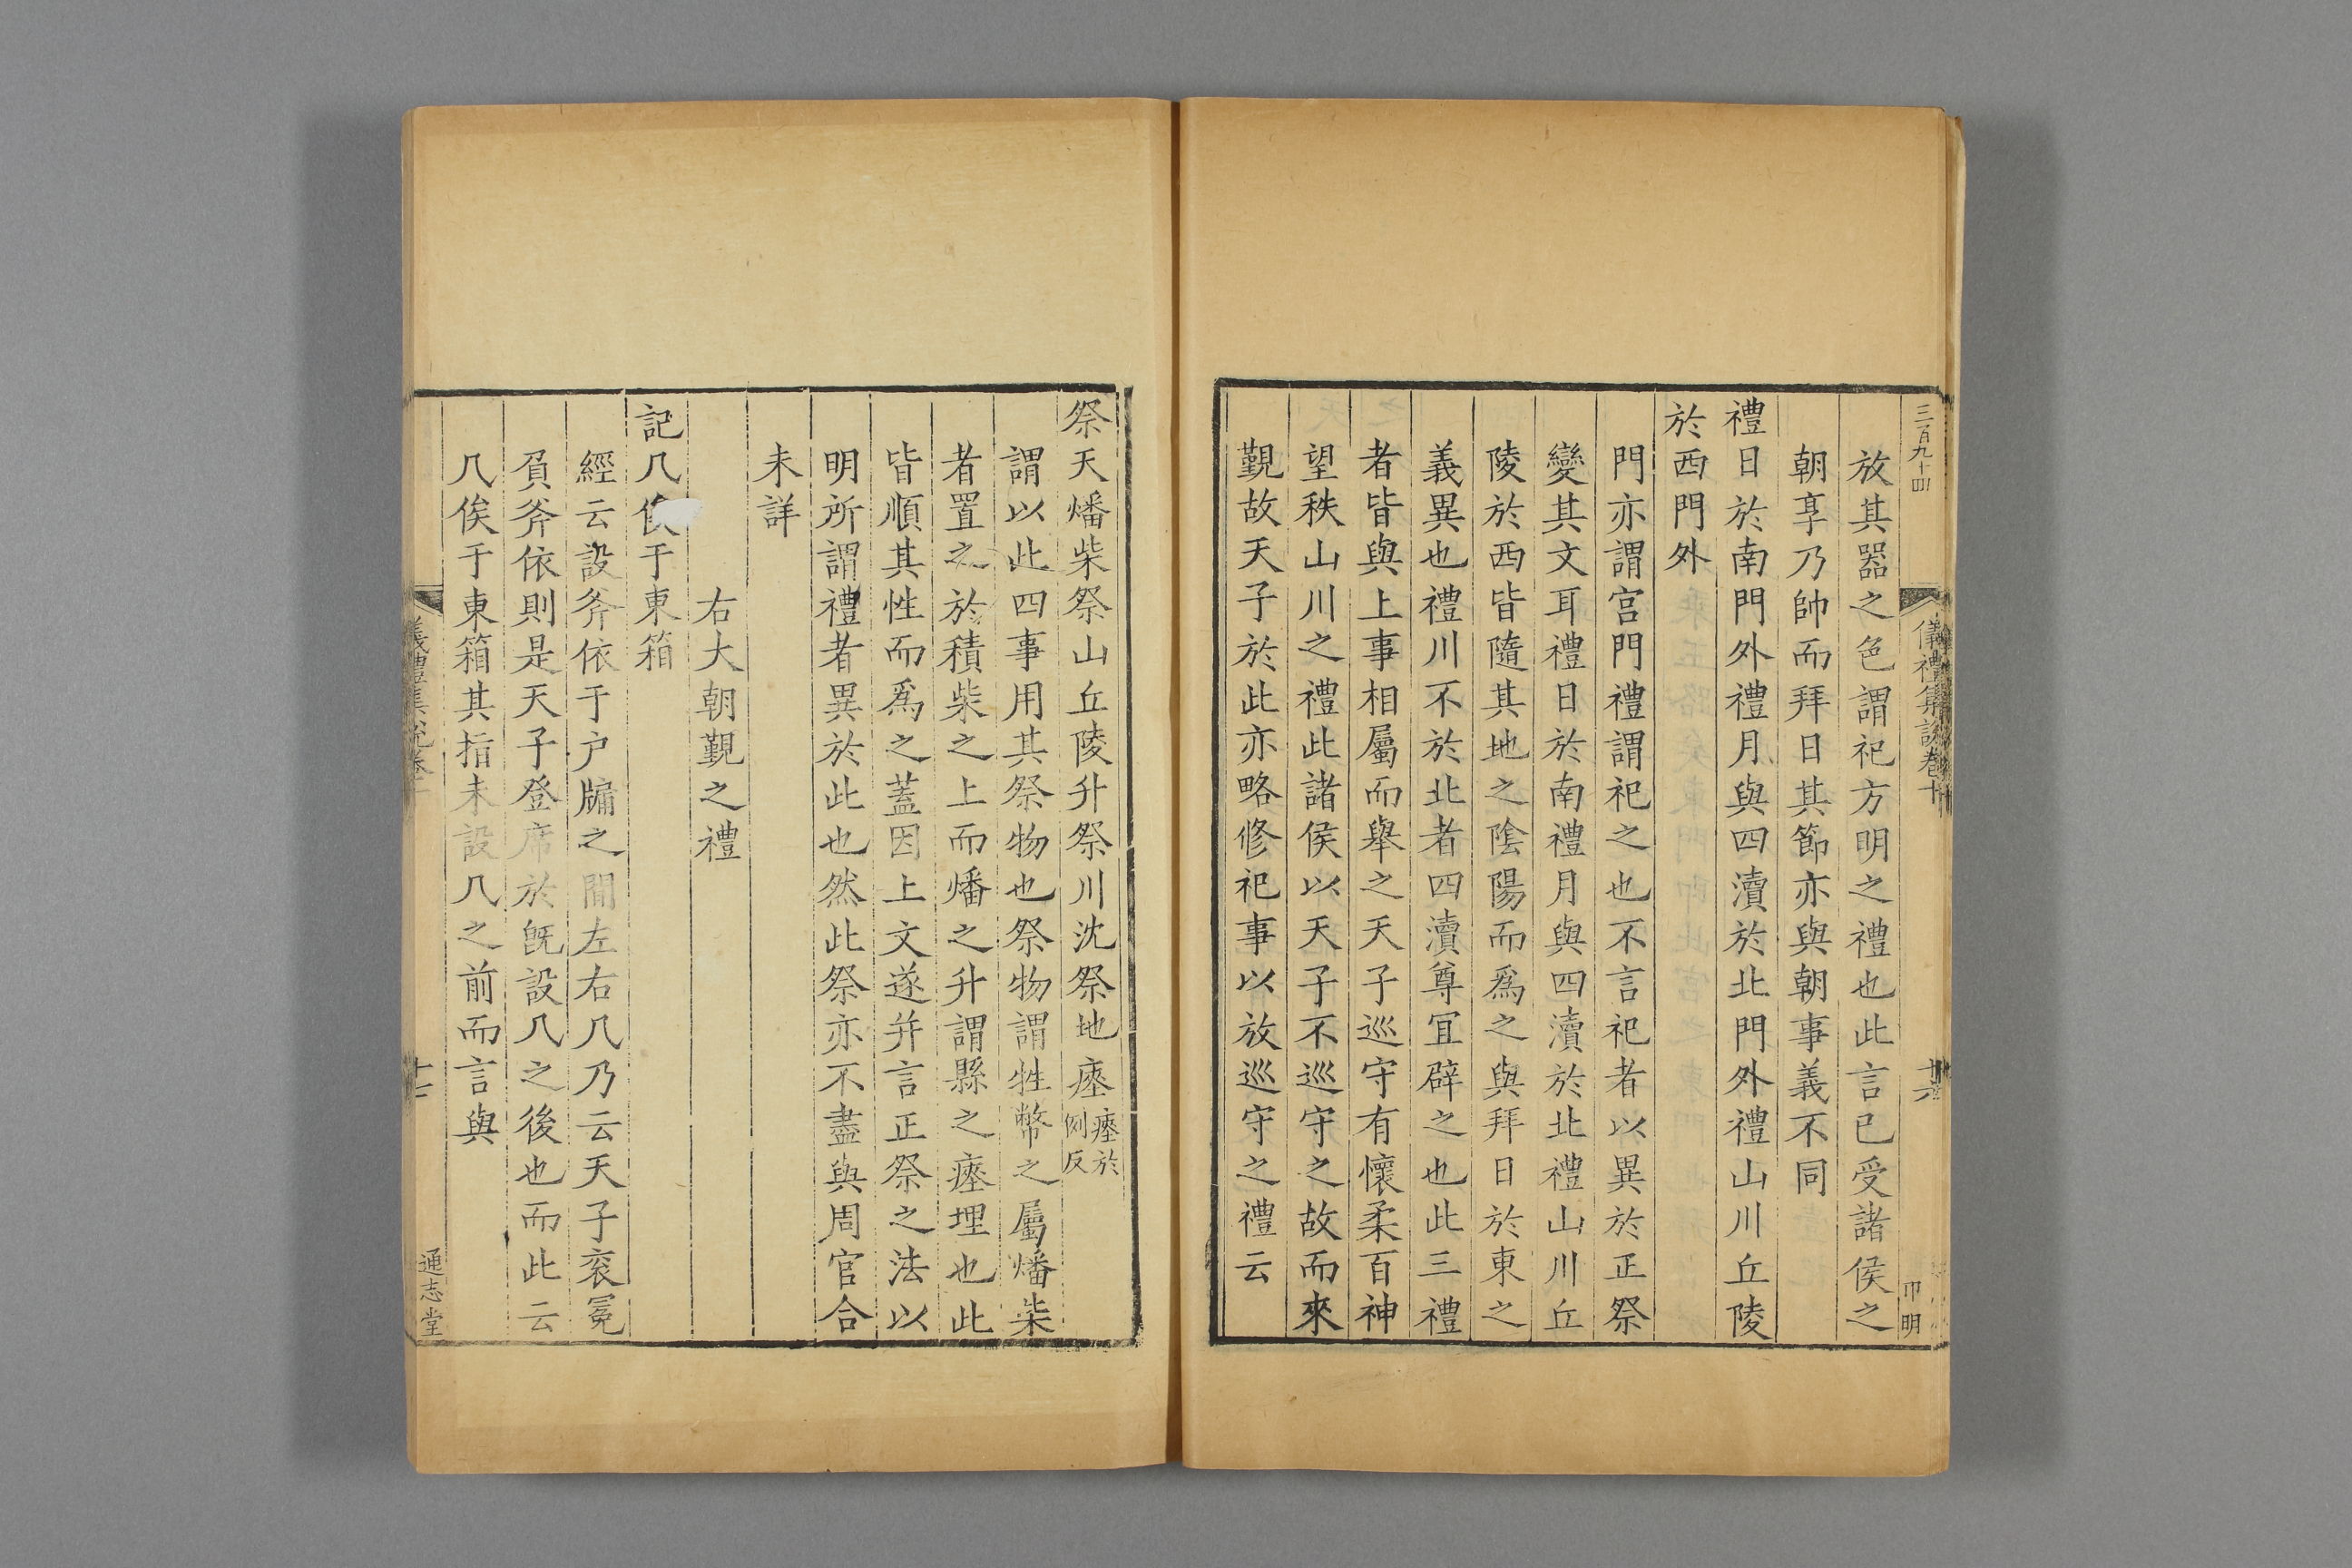 三百九十四
儀禮集說卷十
十六
卩明
放其器之色謂祀方明之禮也此言已受諸侯之
朝享乃帥而拜日其節亦與朝事義不同
禮日於南門外禮月與四瀆於北門外禮山川丘陵
於西門外
門亦謂宮門禮謂祀之也不言祀者以異於正祭
變其文耳禮日於南禮月與四瀆於北禮山川丘
陵於西皆隨其地之陰陽而爲之與拜日於東之
義異也禮川不於北者四瀆尊宜辟之也此三禮
者皆與上事相屬而舉之天子巡守有懷柔百神
望秩山川之禮此諸侯以天子不巡守之故而來
覲故天子於此亦略修祀事以放巡守之禮云
祭天燔柴祭山丘陵升祭川沈祭地瘞瘞於例反
謂以此四事用其祭物也祭物謂牲幣之屬燔柴
者置之於積柴之上而燔之升謂縣之瘞埋也此
皆順其性而爲之蓋因上文遂并言正祭之法以
明所謂禮者異於此也然此祭亦不盡與周官合
未詳
右大朝覲之禮
記几俟于東箱
經云設斧依于户牖之間左右几乃云天子衮冕
負斧依則是天子登席於旣設几之後也而此云
几俟于東箱其指未設几之前而言與
儀禮集說卷十
十七
通志堂